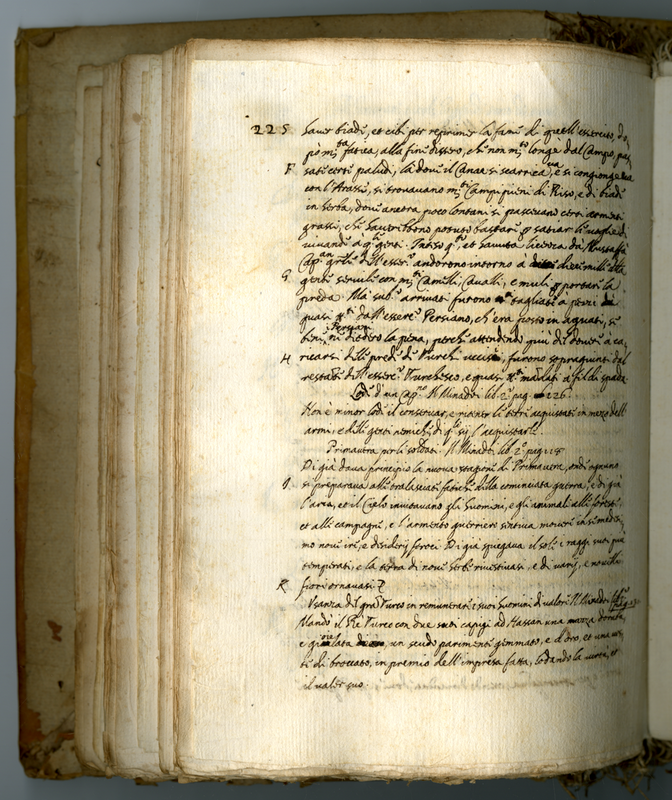 225 haver biade, et cibi per reprimer la fame di quell'essercito, do
pò m.ta fatica, alla fine dissero, che non m.to longe dal Campo, pas
F sati certi paludi, là dove il Canac si scarrica, e si congionge
con l'Arasse, si trovavano m.ti Campi pieni di Riso, e di biade
in herba, dove ancora poco lontani si pascevano certi armenti
grassi, che haverebbono potuto bastare p satiar le voglie di
vivande à q.le genti. Inteso q.sto, et havuta licenza da Mustaffà
Cap.an gn.le dell'esser.o andorono intorno à dieci milli della
G. gente servile con m.ti Camelli, Cavalli, e muli p portar la
preda. Ma sub.o arrivati furono tagliati a pezzi
quasi tt.i dall'esser.o Persiano, ch'era posto in aguati, se
bene Persiani ne diedero la pena, perche attendendo quivi di
H ricarsi delle prede de Turchi uccisi, furono sopragiunti dal
restante dell'esser.o Turchesco, e quasi tt.i mandati à fil di spada.
Lode d'un Cap.no Il Minadoi lib. 2.o pag. 126.
Non è minor lode il conservar, e tener le terre acquistate in mezo dell'
armi, e delle genti nemiche, di q.l si sij l'acquistarle.
Primavera per li soldati. Il Minadoi lib. 2.o pag. 118
Di già dava principio la nuova stagione di Primavera, onde ognuno
I. si preparava alle tralasciate fatiche della cominciata guerra, e di già
l'aria, et il Cielo invitavano gli huomini, e gli animali alle foreste,
et alle campagne, e l'armento guerriero sentiva moversi in se mede
mo nove ire, e desiderij feroci. Di già spiegava il sole i raggi suoi più
temperati, e la terra di nove herbe rivestivasi, e di varij, e novelli
K. fiori ornavasi.
Usanza del gran Turco in remunerare i suoi huomini di valore. Il Minadoi
Mandò il Rè Turco con due suoi capigi ad Hassan una mazza dorata,
e gioielata, un scudo parimente gemmato, e d'oro, et una ves
te di broccato, in premio dell'impresa fatta, lodando la virtù, et
il valor suo.